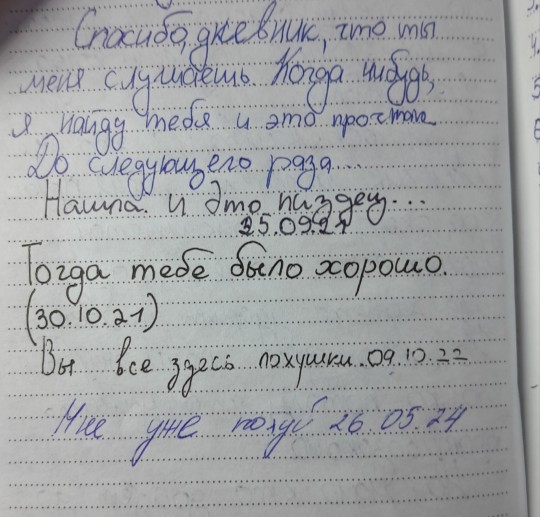 Спасибо, дневник, что ты
меня слушаешь. Когда нибудь,
я найду тебя и это прочитаю
До следующего раза...
Нашла. И это пиздец...
25.09.21
Тогда тебе было хорошо.
(30.10.21)
Вы все здесь лохушки. 09.10.22
Мне уже похуй 26.05.24